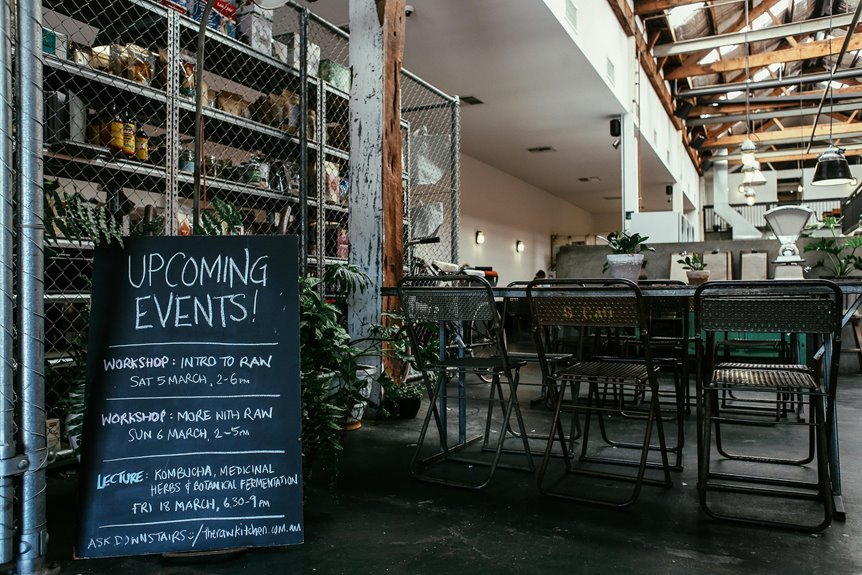 UPCOMING
EVENTS!
WORKSHOP: INTRO TO RAW
SAT 5 MARCH, 2-6PM
WORKSHOP: MORE WITH RAW
SUN 6 MARCH, 2-5PM
LECTURE: KOMBUCHA, MEDICINAL
HERBS & BOTANICAL FERMENTATION
FRI 18 MARCH, 6.30-9PM
ASK DOWNSTAIRS :)/therawkitchen.com.au